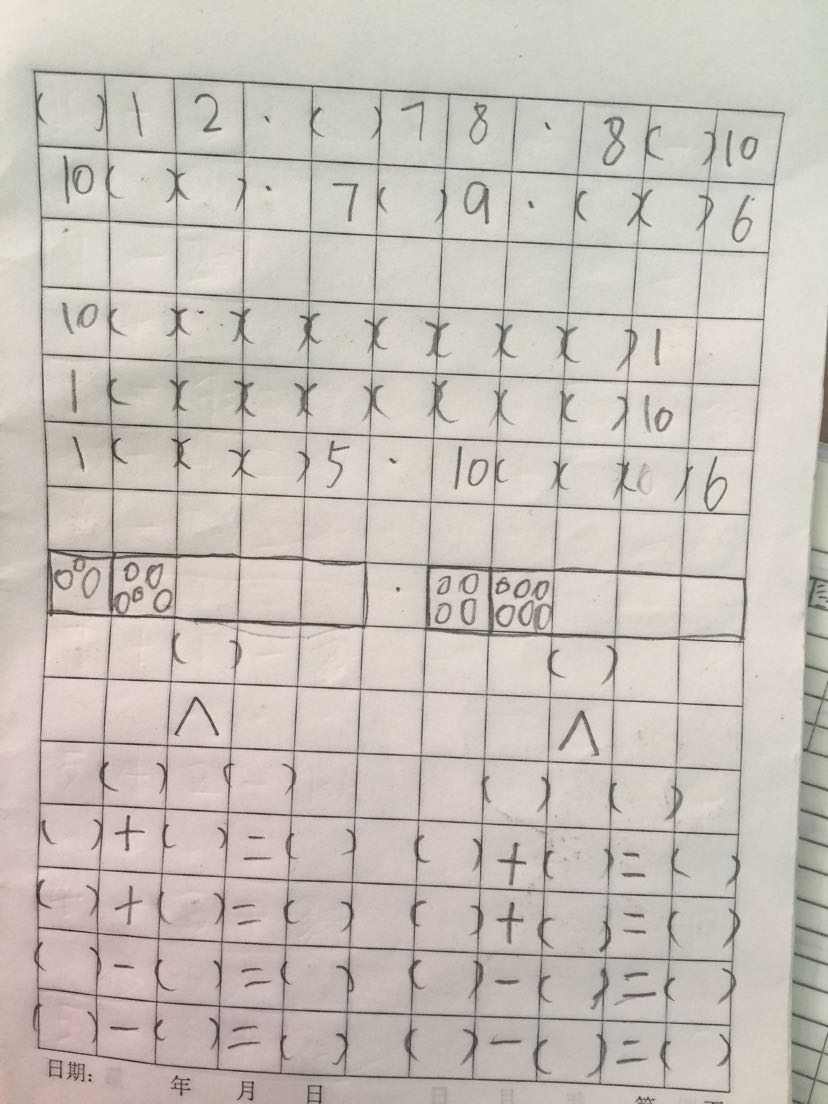 ( ) 1 2 · ( ) 7 8 · 8 ( ) 10
10 ( ) ( ) · 7 ( ) 9 · ( ) ( ) 6
10 ( ) ( ) ( ) ( ) ( ) ( ) ( ) ( ) 1
1 ( ) ( ) ( ) ( ) ( ) ( ) ( ) ( ) 10
1 ( ) ( ) ( ) 5 · 10 ( ) ( ) ( ) 6
·
( ) ( )
∧ ∧
( ) ( ) ( ) ( )
( ) + ( ) = ( ) ( ) + ( ) = ( )
( ) + ( ) = ( ) ( ) + ( ) = ( )
( ) - ( ) = ( ) ( ) - ( ) = ( )
( ) - ( ) = ( ) ( ) - ( ) = ( )
日期： 年 月 日